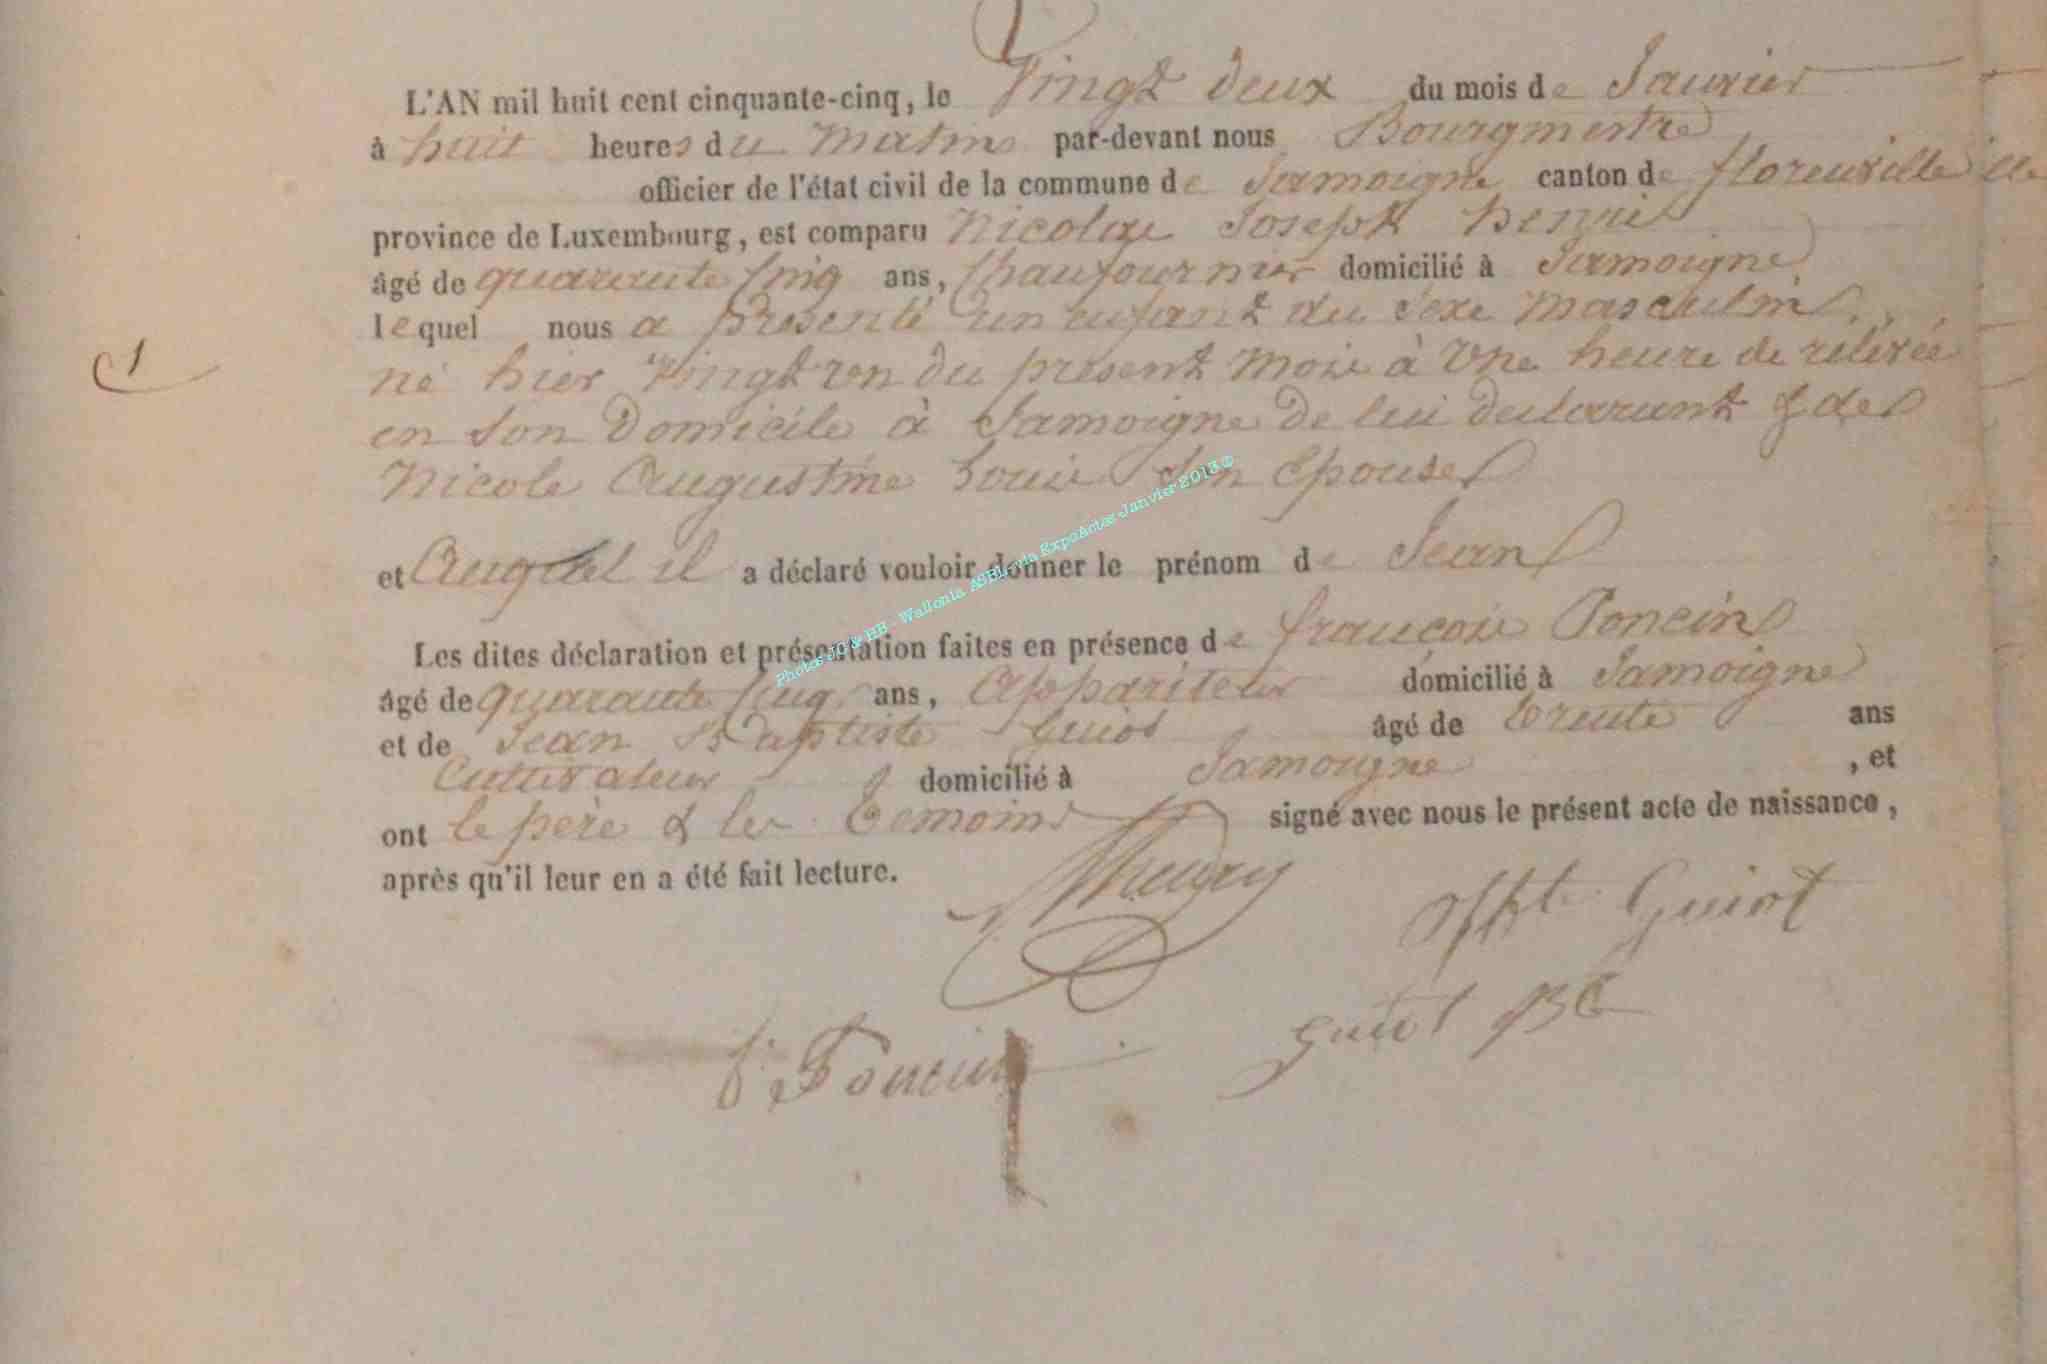 L'AN mil huit cent cinquante-cinq, le Vingt deux du mois de Janvier
à huit heures du matin par-devant nous Bourgmestre
officier de l'état civil de la commune de Jamoigne canton de florenville
province de Luxembourg, est comparu Nicolas Joseph Henri
âgé de quarante cinq ans, Chaufournier domicilié à Jamoigne
lequel nous a présenté un enfant du sexe masculin
né hier vingt un du présent mois à une heure de relevée
en son domicile à Jamoigne de lui déclarant & de
Nicole Augustine Louis son épouse
et Auquel il a déclaré vouloir donner le prénom de Jean
Les dites déclaration et présentation faites en présence de françois Poncin
âgé de quarante cinq ans, Appariteur domicilié à Jamoigne
et de Jean Baptiste Guiot âgé de trente ans
Cultivateur domicilié à Jamoigne , et
ont le père & les témoins signé avec nous le présent acte de naissance,
après qu'il leur en a été fait lecture.
Guiot
Guiot
f. Poncin
Photos JC & BB - Wallonia ASBL via ExpoActes Janvier 2013 ©
1